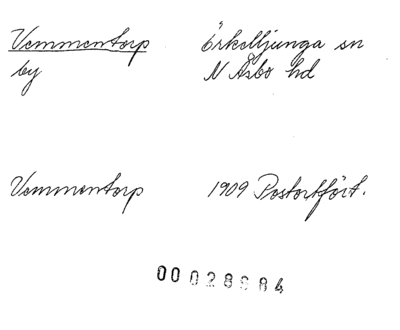 Vemmentorp Örkelljunga sn
by N Åsbo hd
Vemmentorp 1909 Postortfört.
00028984